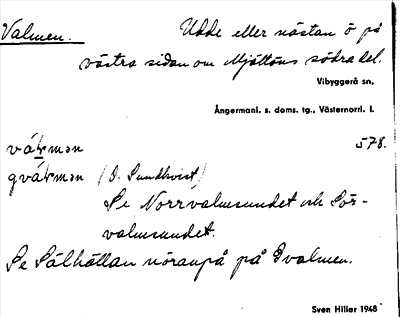 Valmen. Udde eller nästan ö på
västra sidan om Mjältöns södra del.
Vibyggerå sn,
Ångermanl. s. doms. tg., Västernorrl. l.
578.
våɫmən
gvåɫmən (O. Sundkvist)
Se Norrvalmsundet och Sör-
valmsundet.
Se Sälhällan nöranpå på Gvalmen.
Sven Hiller 1948